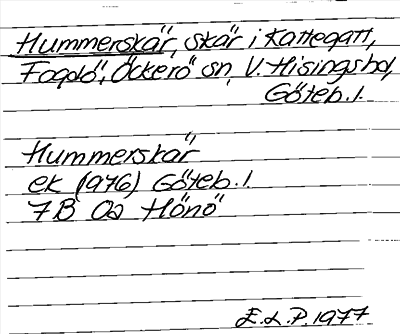 Hummerskär, skär i Kattegatt,
Fogdö, Öckerö sn, V. Hisings hd,
Göteb. l.
Hummerskär
ek (1976) Göteb. l
7B 0a Hönö
E.L.P. 1977